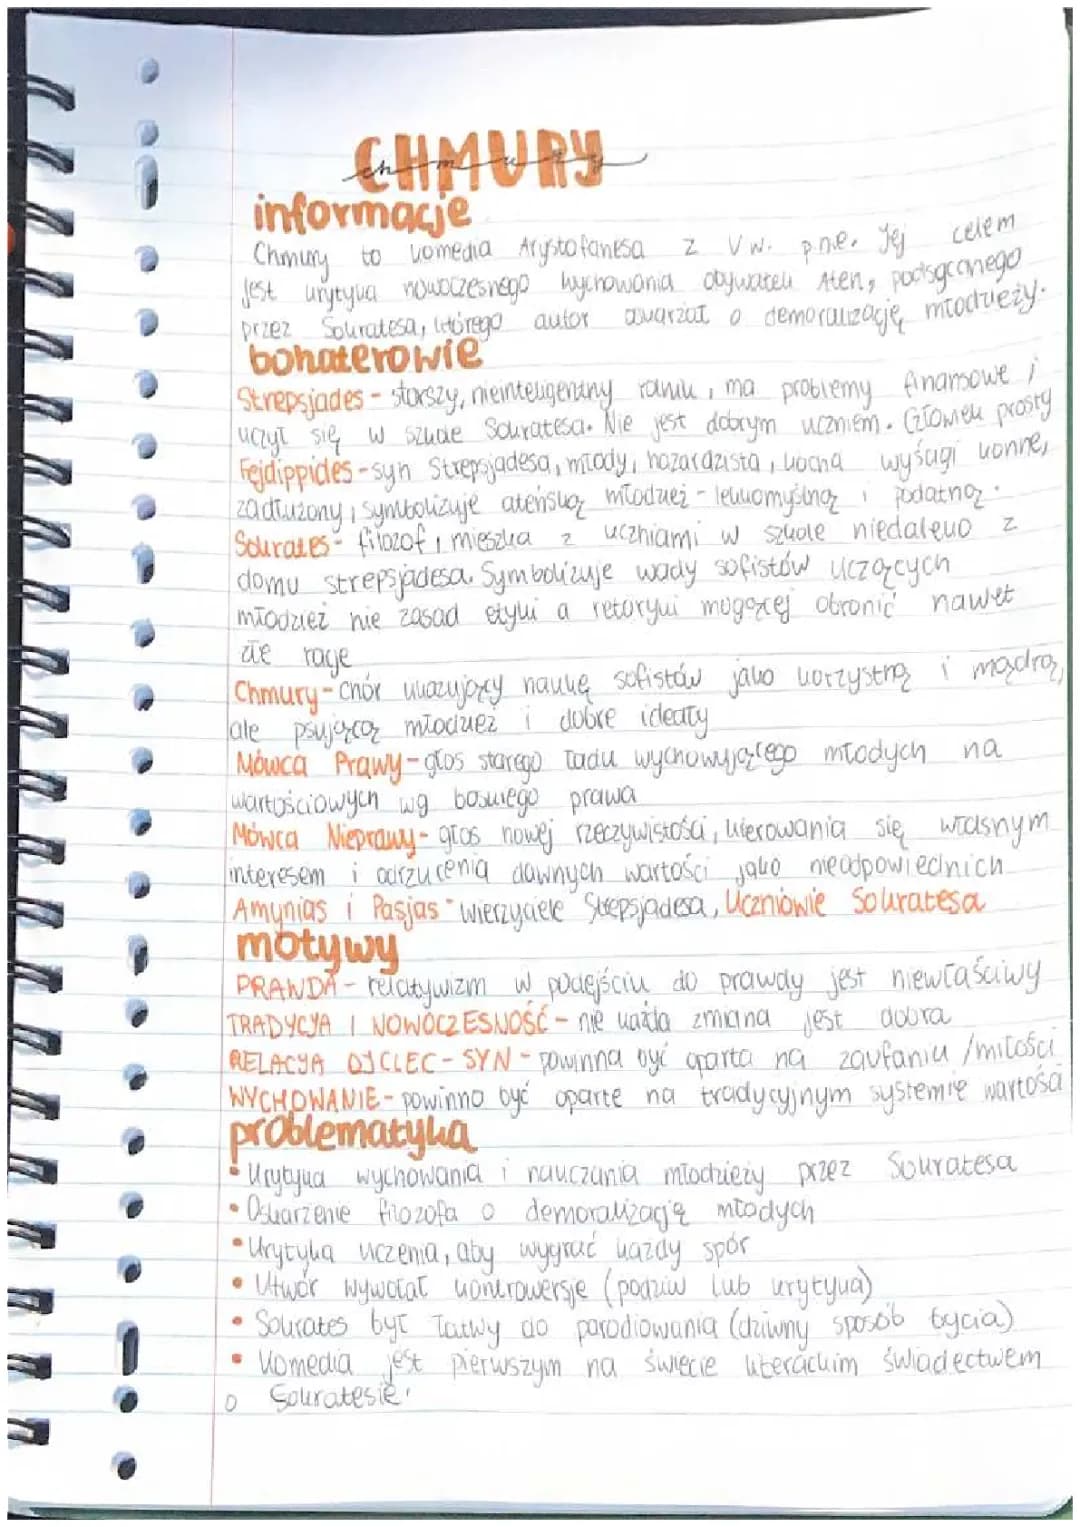 CHMURY
chmury
informacje
Chmury to komedia Arystofanesa z V w. p.n.e. Jej celem
jest krytyka nowoczesnego wychowania obywateli Aten, podsycanego
przez Sokratesa, którego autor oskarżał o demoralizację młodzieży.
bohaterowie
Strepsjades - starszy, nieinteligentny rolnik, ma problemy finansowe i
uczył się w szkole Sokratesa. Nie jest dobrym uczniem. Człowiek prosty
Fejdippides - syn Strepsjadesa, młody, hazardzista, kocha wyścigi konne,
zadłużony, symbolizuje ateńską młodzież - lekkomyślną i podatną.
Sokrates - filozof, mieszka z uczniami w szkole niedaleko z
domu strepsjadesa. Symbolizuje wady sofistów uczących
młodzież nie zasad etyki a retoryki mogącej obronić nawet
złe racje
Chmury - chór ukazujący naukę sofistów jako korzystną i mądrą,
ale psującą młodzież i dobre ideały
Mówca Prawy - głos starego ładu wychowującego młodych na
wartościowych wg boskiego prawa
Mówca Nieprawy - głos nowej rzeczywistości, kierowania się własnym
interesem i odrzucenia dawnych wartości jako nieodpowiednich
Amynias i Pasjas - wierzyciele Strepsjadesa, Uczniowie Sokratesa
motywy
PRAWDA - relatywizm w podejściu do prawdy jest niewłaściwy
TRADYCJA I NOWOCZESNOŚĆ - nie każda zmiana jest dobra
RELACJA OJCIEC - SYN - powinna być oparta na zaufaniu / miłości
WYCHOWANIE - powinno być oparte na tradycyjnym systemie wartości
problematyka
• Krytyka wychowania i nauczania młodzieży przez Sokratesa
• Oskarżenie filozofa o demoralizację młodych
• Krytyka uczenia, aby wygrać każdy spór
• Utwór wywołał kontrowersje (podziw lub krytyka)
• Sokrates był łatwy do parodiowania (dziwny sposób bycia)
• Komedia jest pierwszym na świecie literackim świadectwem
o Sokratesie.